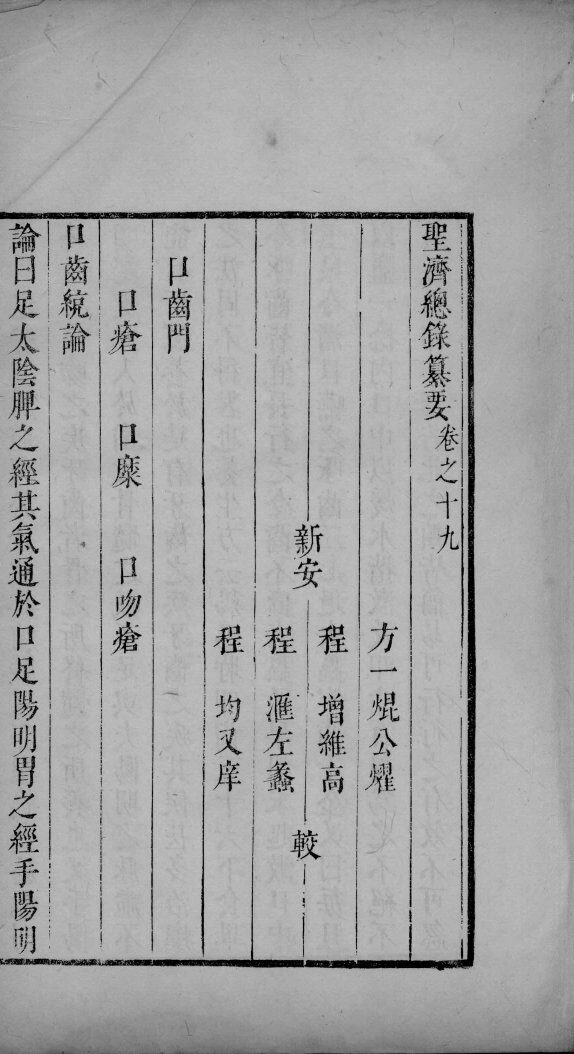 聖濟總錄纂要卷之十九
方一焜公燿
新安程增維高較
程滙左蠡
程均叉庠
口齒門
口瘡 口糜 口吻瘡
口齒統論
論曰足太陰脾之經其氣通於口足陽明胃之經手陽明